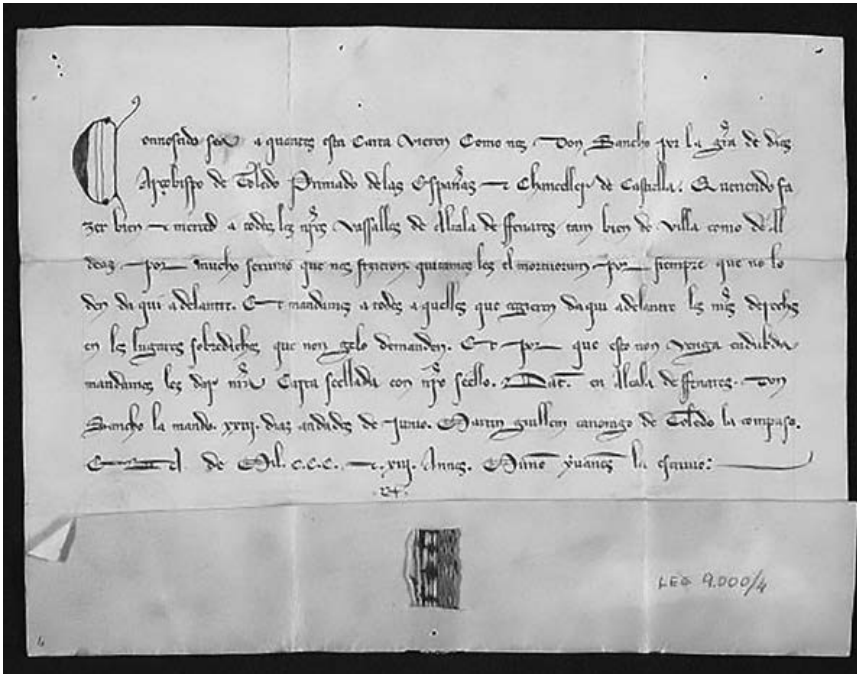 Connosçido sea a quantos esta Carta vieren Como nos Don Sancho por la gr̃a de dios
Arçobispo de Toledo Primado de las Españas et Chanceller de Castiella. Queriendo fa
zer bien et merced a todos los nr̃os vassallos de Alcala de ffenares tam bien de villa como de All
deas por mucho seruicio que nos fizieron quitamos les el mortuorum por siempre que no lo
den da qui adelantre. Et mandamos a todos a quellos que cogieren da qui adelantre los nr̃os derechos
en los lugares sobredichos que non gelo demanden. Et por que esto non venga en dubda
mandamos les dar nr̃a Carta seellada con nr̃o seello. Dat̃ en Alcala de ffenares. Don
Sancho la mando. xxiij. dias andados de Junio. Martin guillem canonigo de Toledo la compaso.
de Mil. c.c.c. et. xiij. Annos. yuanes la escriuio:
LEG 9.000/4
4